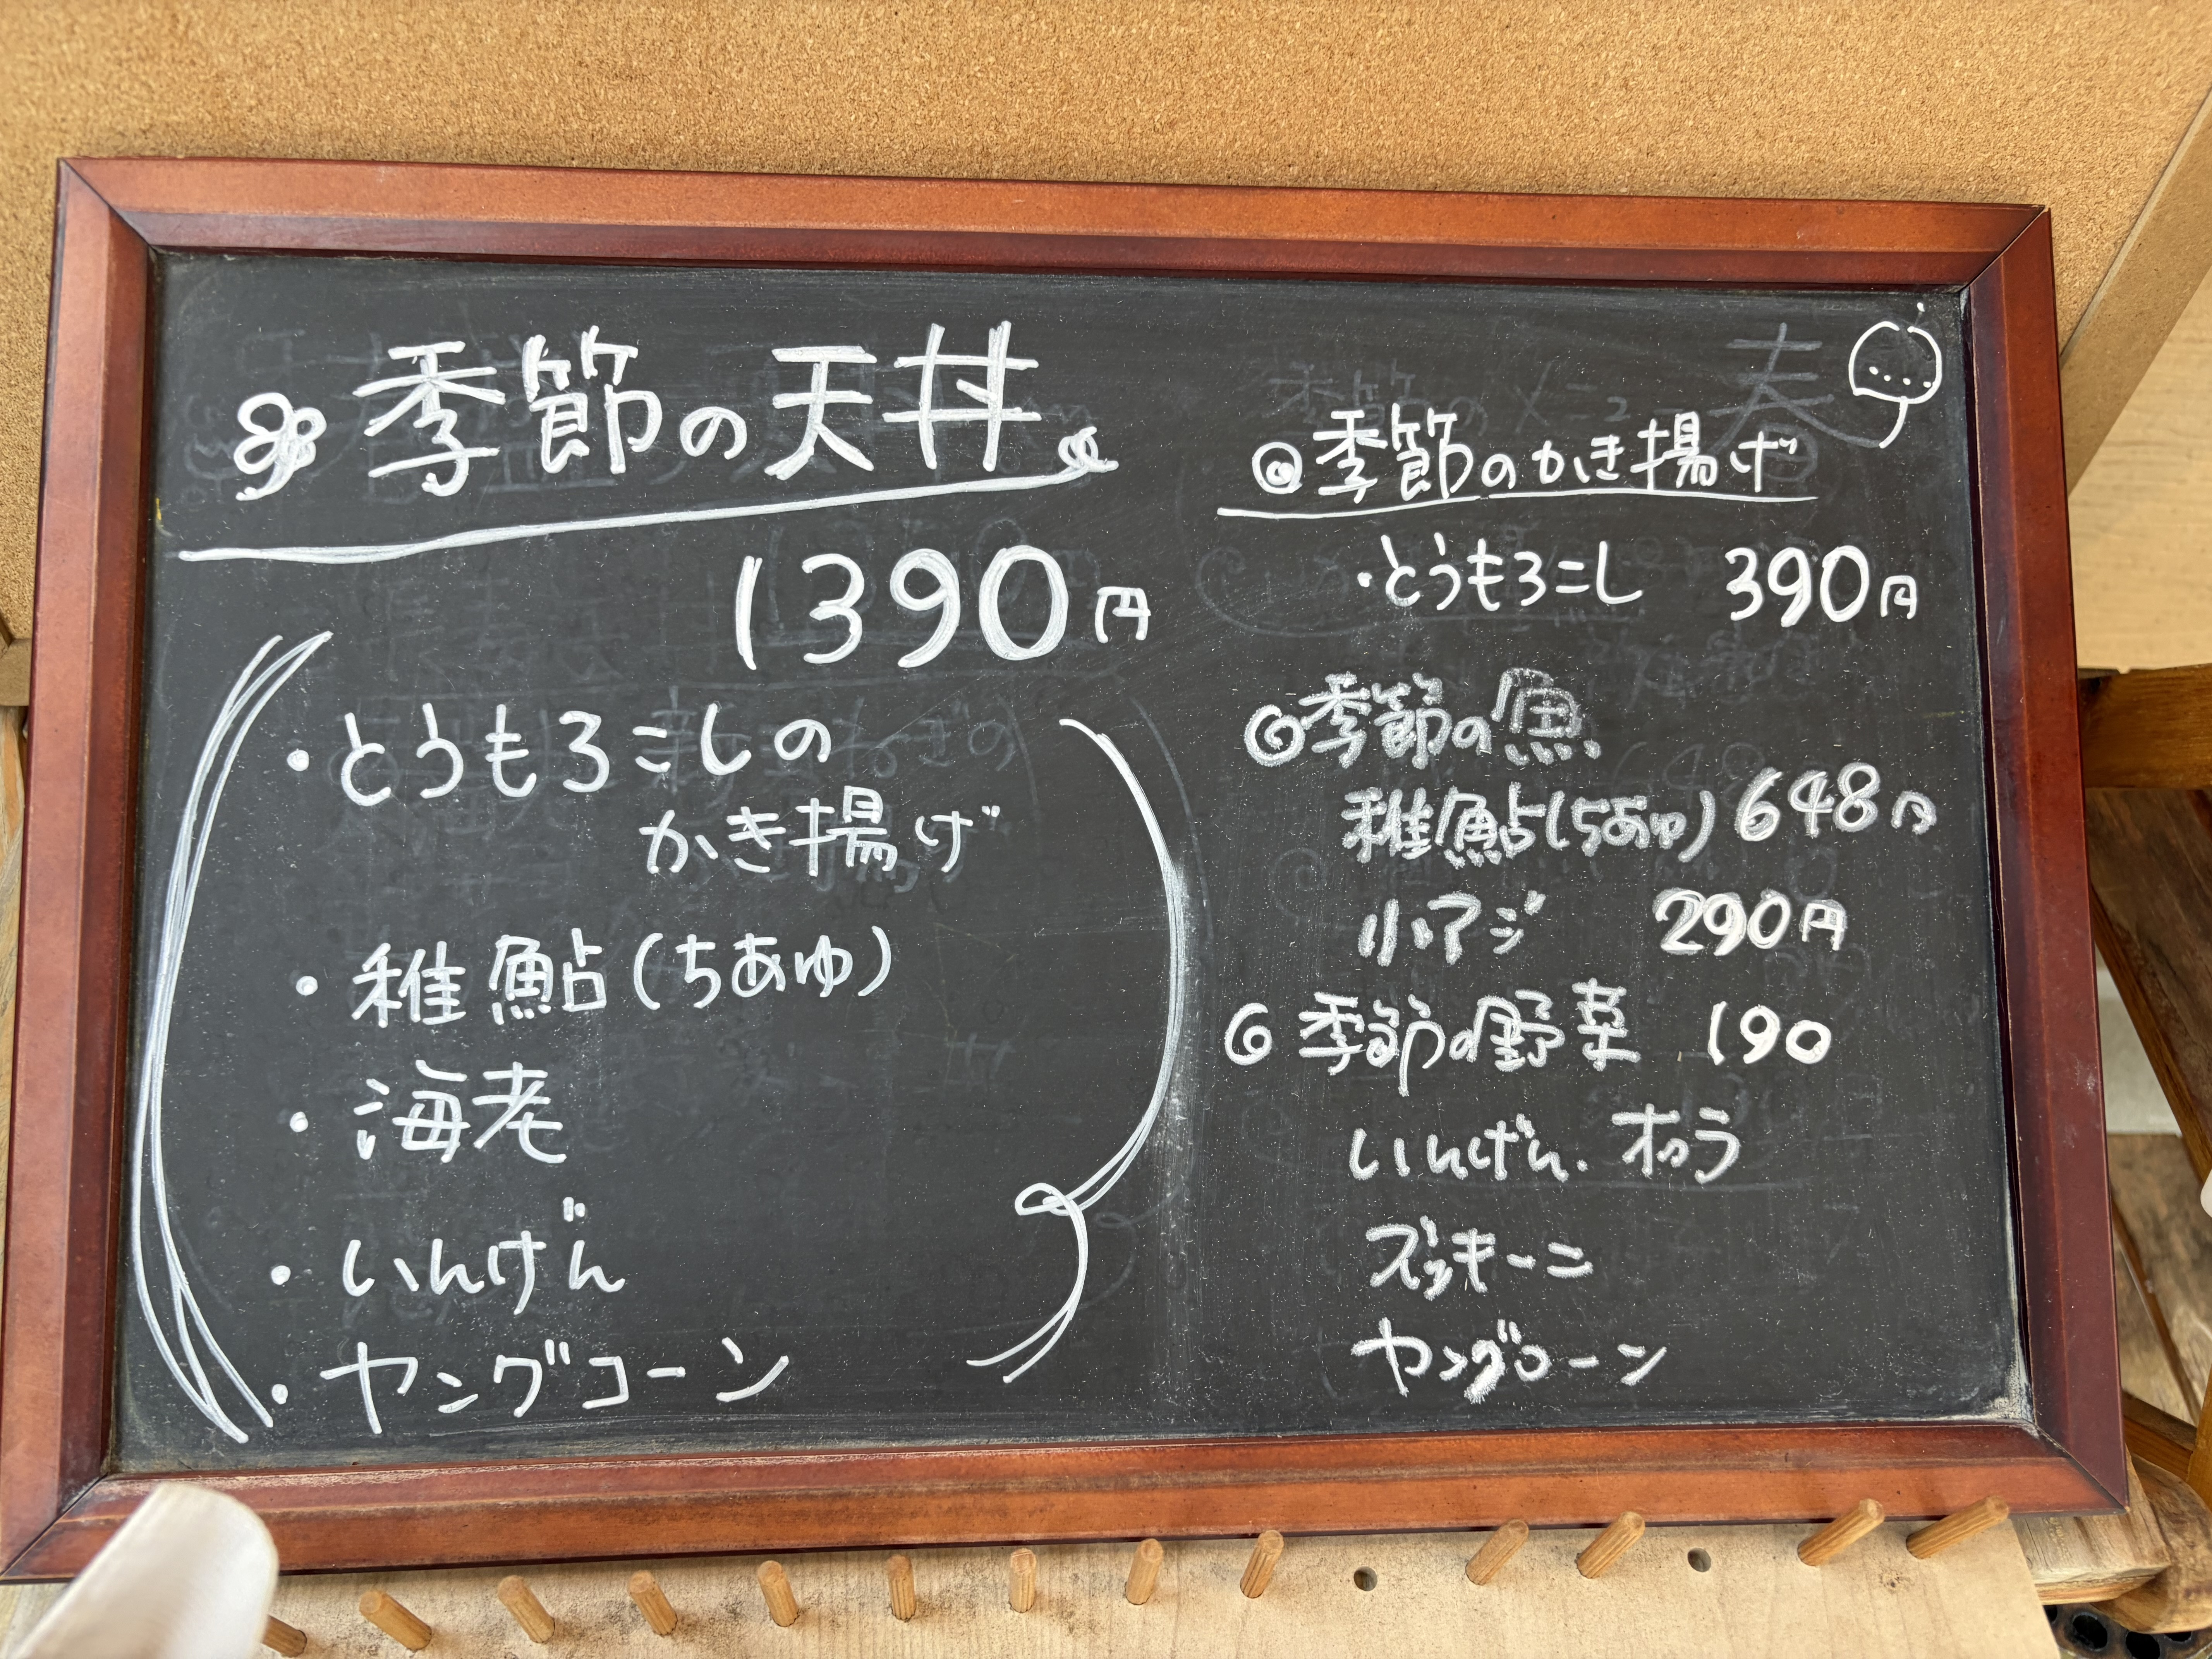 季節の天丼
1390円
・とうもろこしの
かき揚げ
・稚鮎(ちあゆ)
・海老
・いんげん
・ヤングコーン
春
◎季節のかき揚げ
・とうもろこし 390円
◎季節の魚
稚鮎(ちあゆ) 648円
小アジ 290円
◎季節の野菜 190
いんげん.オクラ
ズッキーニ
ヤングコーン